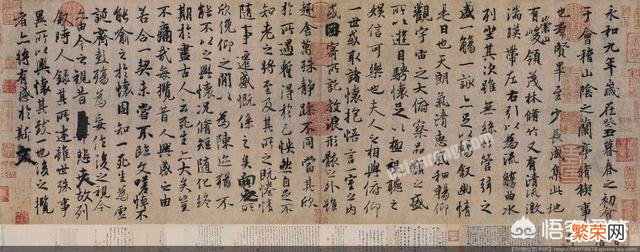 永和九年歲在癸丑暮春之初會
于會稽山陰之蘭亭脩稧事
也羣賢畢至少長咸集此地
有崇山峻領茂林脩竹又有清流激
湍暎帶左右引以為流觴曲水
列坐其次雖無絲竹管弦之
盛一觴一詠亦足以暢敘幽情
是日也天朗氣清惠風和暢仰
觀宇宙之大俯察品類之盛
所以遊目騁懷足以極視聽之
娛信可樂也夫人之相與俯仰
一世或取諸懷抱悟言一室之內
或因寄所託放浪形骸之外雖
趣舍萬殊靜躁不同當其欣
於所遇蹔得於己怏然自足不
知老之將至及其所之既惓情
隨事遷感慨係之矣向之所
欣俛仰之閒以為陳迹猶不
能不以之興懷況脩短隨化終
期於盡古人云死生亦大矣豈
不痛哉每攬昔人興感之由
若合一契未嘗不臨文嗟悼不
能喻之於懷固知一死生為虛
誕齊彭殤為妄作後之視今
亦由今之視昔悲夫故列
敘時人錄其所述雖世殊事
異所以興懷其致一也後之攬
者亦將有感於斯文
繁荣网